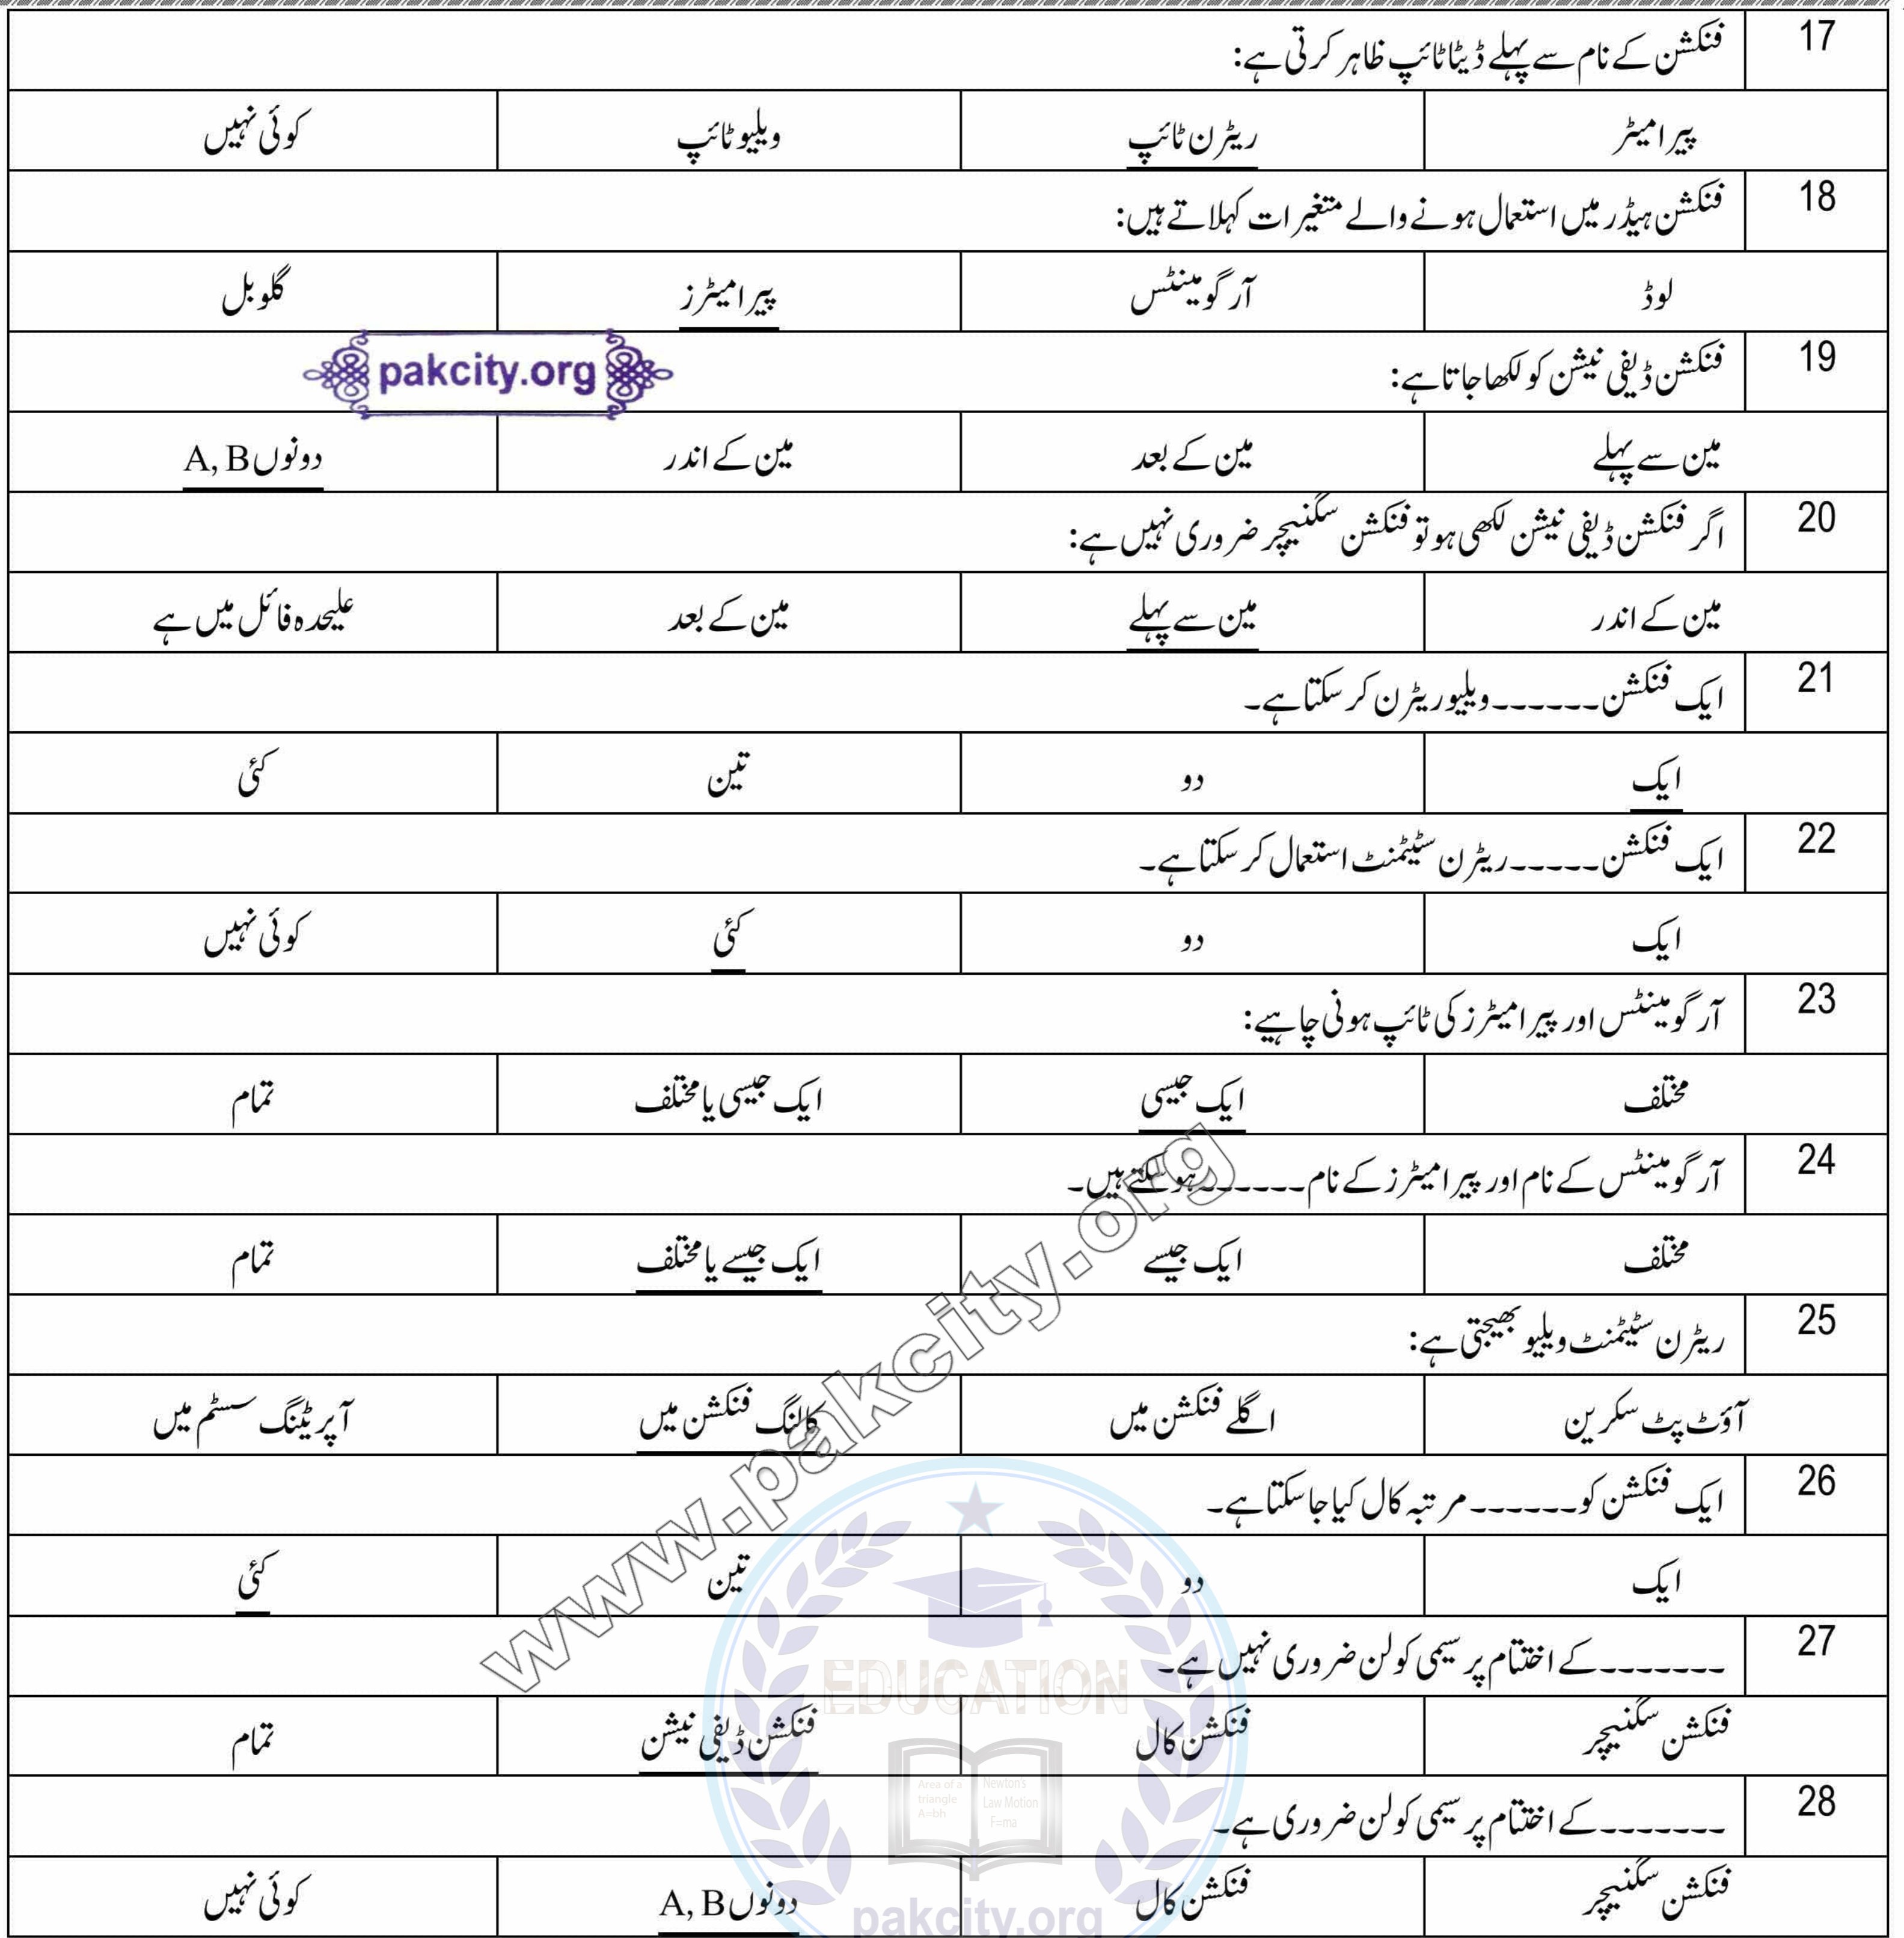 17 فنکشن کے نام سے پہلے ڈیٹا ٹائپ ظاہر کرتی ہے:
پیرامیٹر ریٹرن ٹائپ ویلیو ٹائپ کوئی نہیں
18 فنکشن ہیڈر میں استعمال ہونے والے متغیرات کہلاتے ہیں:
لوڈ آرگومینٹس پیرامیٹرز گلوبل
19 فنکشن ڈیفی نیشن کو لکھا جاتا ہے:
pakcity.org
مین سے پہلے مین کے بعد مین کے اندر دونوں A, B
20 اگر فنکشن ڈیفی نیشن لکھی ہو تو فنکشن سگنیچر ضروری نہیں ہے:
مین کے اندر مین سے پہلے مین کے بعد علیحدہ فائل میں ہے
21 ایک فنکشن۔۔۔۔۔۔ویلیو ریٹرن کر سکتا ہے۔
ایک دو تین کئی
22 ایک فنکشن۔۔۔۔۔ریٹرن سٹیٹمنٹ استعمال کر سکتا ہے۔
ایک دو کئی کوئی نہیں
23 آرگومینٹس اور پیرامیٹرز کی ٹائپ ہونی چاہیے:
مختلف ایک جیسی ایک جیسی یا مختلف تمام
24 آرگومینٹس کے نام اور پیرامیٹرز کے نام۔۔۔۔۔۔ہو سکتے ہیں۔
مختلف ایک جیسے ایک جیسے یا مختلف تمام
25 ریٹرن سٹیٹمنٹ ویلیو بھیجتی ہے:
آؤٹ پٹ سکرین اگلے فنکشن میں کالنگ فنکشن میں آپریٹنگ سسٹم میں
26 ایک فنکشن کو۔۔۔۔۔۔مرتبہ کال کیا جا سکتا ہے۔
ایک دو تین کئی
27 ۔۔۔۔۔۔۔کے اختتام پر سیمی کولن ضروری نہیں ہے۔
فنکشن سگنیچر فنکشن کال فنکشن ڈیفی نیشن تمام
28 ۔۔۔۔۔۔۔کے اختتام پر سیمی کولن ضروری ہے۔
فنکشن سگنیچر فنکشن کال دونوں A, B کوئی نہیں
www.pakcity.org
EDUCATION
Area of a triangle A=bh
Newton's Law Motion F=ma
pakcity.org